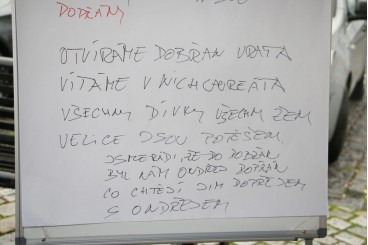 DOBŘANY
OTVÍRÁME DOBŘAN VRATA
VÍTÁME V NICH LAUREÁTA
VŠECHNY DÍVKY VŠECHNY ŽEN
VELICE JSOU POTĚŠENY
JSME RÁDI, ŽE DO DOBŘAN
BYL NÁM ONDŘEJ DOPŘÁN
CO CHTĚJÍ JIM DOPŘEJEM
S ONDŘEJEM